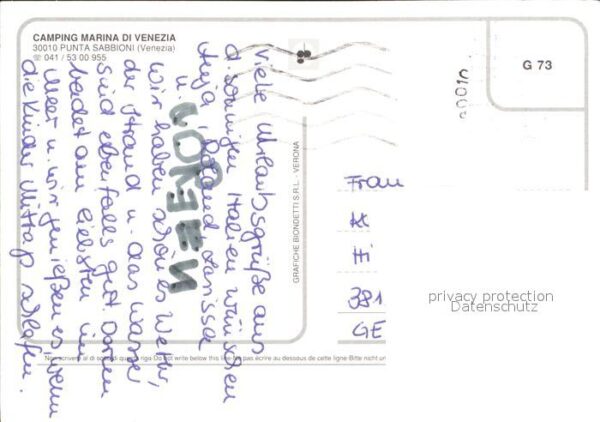 CAMPING MARINA DI VENEZIA
30010 PUNTA SABBIONI (Venezia)
☏ 041 / 53 00 955
G 73
Viele Urlaubsgrüße aus
d. sonnigen Italien wünschen
Anja, Roland Larissa
u. DOREEN
wir haben schönes Wetter,
der Strand u. das Wasser
sind ebenfalls gut. Doreen
badet am liebsten im
Meer u. wir genießen es, wenn
die Kinder Mittags schlafen.
GRAFICHE BIONDETTI S.R.L. - VERONA
Frau
391
GE
privacy protection
Datenschutz
Non scrivere al di sotto di questa riga Do not write below this line Ne pas écrire au dessous de cette ligne Bitte nicht un